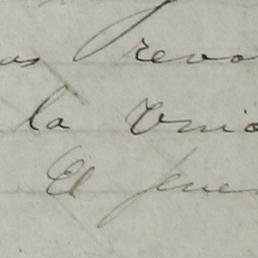 os revo
la Unio
El fue